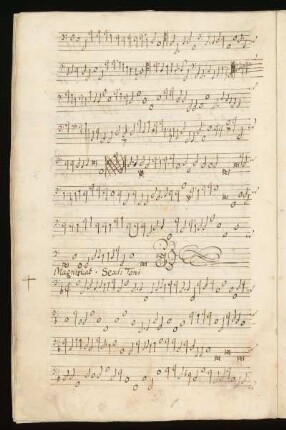 Magnificat. Sexti Toni